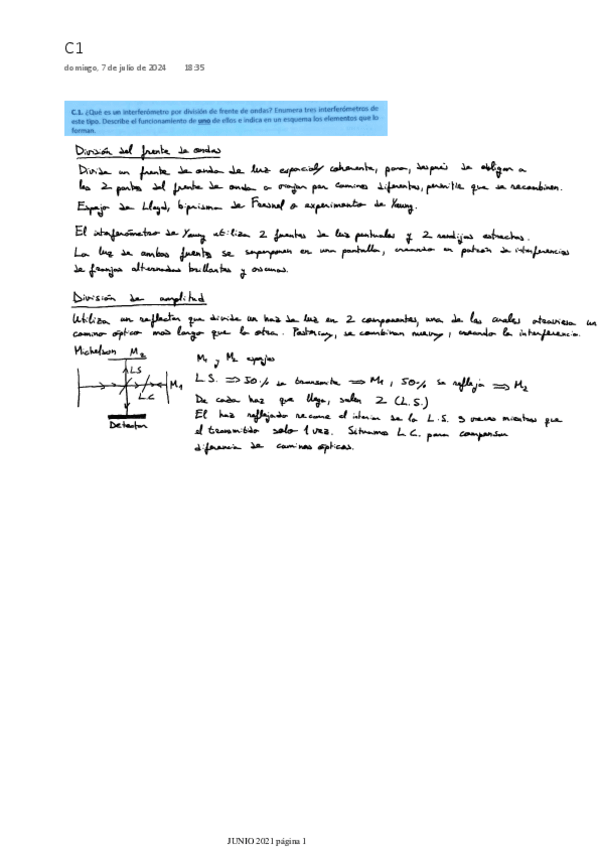 C1
domingo, 7 de julio de 2024 18:35
C.1. ¿Qué es un interferómetro por división de frente de ondas? Enumera tres interferómetros de
este tipo. Describe el funcionamiento de uno de ellos e indica en un esquema los elementos que lo
forman.
División del frente de ondas
Divide un frente de onda de luz espacial coherente, para, después de obligar a
las 2 partes del frente de onda a viajar por caminos diferentes, permitir que se recombinen.
Espejo de Lloyd, biprisma de Fresnel o experimento de Young.
El interferómetro de Young utiliza 2 fuentes de luz puntuales y 2 rendijas estrechas.
La luz de ambas fuentes se superponen en una pantalla, creando un patrón de interferencias
de franjas alternadas brillantes y oscuras.
División de amplitud
Utiliza un reflector que divide un haz de luz en 2 componentes, una de las cuales atraviesa un
camino óptico más largo que la otra. Posteriorm, se combinan nuevam, creando la interferencia.
Michelson M2
LS
M1
LC
Detector
M1 y M2 espejos
L.S. ⇒ 50% se transmite ⇒ M1, 50% se refleja ⇒ M2
De cada haz que llega, salen 2 (L.S.)
El haz reflejado recorre el interior de la L.S. 3 veces mientras que
el transmitido solo 1 vez. Situamos L.C. para compensar
diferencia de caminos ópticos.
JUNIO 2021 página 1